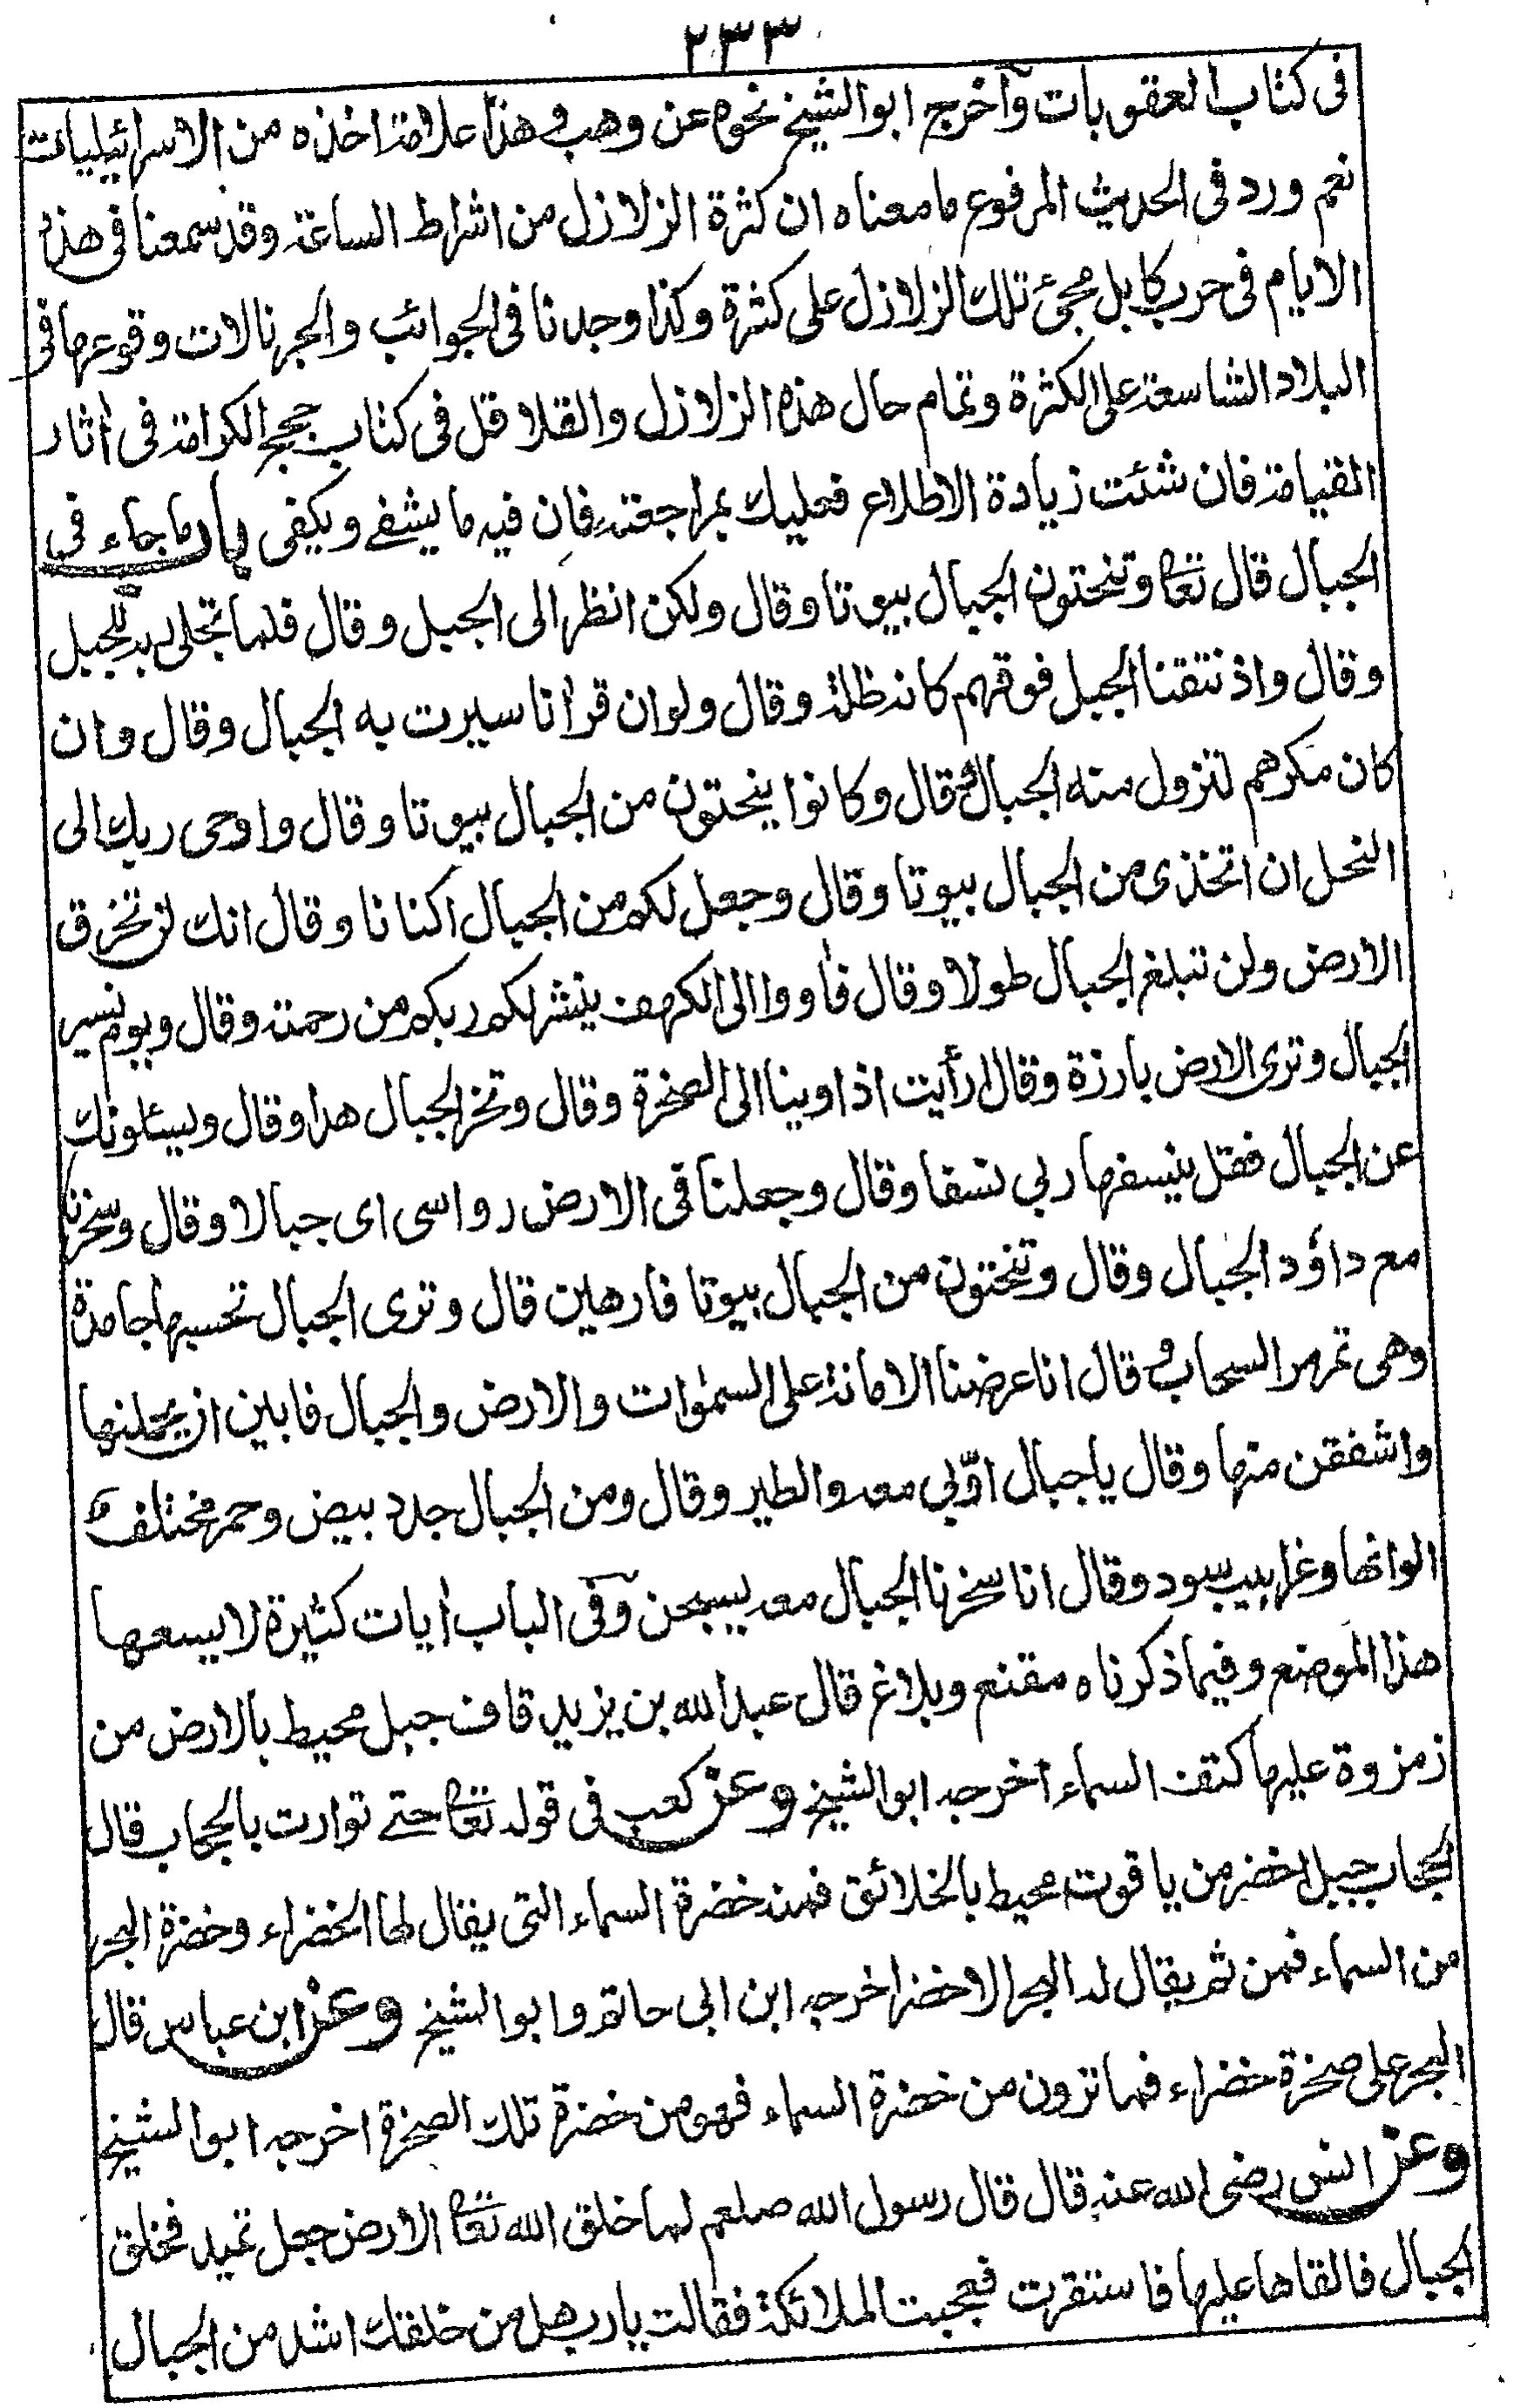 ٢٣٣
فى كتاب العقوبات وأخرج ابو الشيخ نحوه عن وهب وهذا علامة اخذه من الاسرائيليات
نعم ورد فى الحديث المرفوع ما معناه ان كثرة الزلازل من اشراط الساعة وقد سمعنا فى هذه
الايام فى حرب كابل مجئ تلك الزلازل على كثرة وكذا وجدنا فى الجوائب والجرنالات وقوعها فى
البلاد الشاسعة على الكثرة وتمام حال هذه الزلازل والقلاقل فى كتاب حجج الكرامة فى اٰثار
القيامة فان شئت زيادة الاطلاع فعليك بمراجعته فان فيه ما يشفے ويكفى باب ما جاء فى
الجبال قال تعا وتنحتون الجبال بيوتا وقال ولكن انظر الى الجبل وقال فلما تجلى ربه للجبل
وقال واذ نتقنا الجبل فوقهم كانه ظلة وقال ولو ان قراٰنا سيرت به الجبال وقال وان
كان مكرهم لتزول منه الجبال وقال وكانوا ينحتون من الجبال بيوتا وقال واوحى ربك الى
النحل ان اتخذى من الجبال بيوتا وقال وجعل لكم من الجبال اكنانا وقال انك لن تخرق
الارض ولن تبلغ الجبال طولا وقال فاٰووا الى الكهف ينشر لكم ربكم من رحمته وقال ويوم نسير
الجبال وترى الارض بارزة وقال ارأيت اذ اوينا الى الصخرة وقال وتخر الجبال هدا وقال ويسئلونك
عن الجبال فقل ينسفها ربي نسفا وقال وجعلنا فى الارض رواسى اى جبالا وقال وسخرنا
مع داؤد الجبال وقال وتنحتون من الجبال بيوتا فارهين قال وترى الجبال تحسبها جامدة
وهى تمر مر السحاب وقال انا عرضنا الامانة على السمٰوات والارض والجبال فابين ان يحملنها
واشفقن منها وقال يا جبال اوّبي معه والطير وقال ومن الجبال جدد بيض وحمر مختلف
الوانها وغرابيب سود وقال انا سخرنا الجبال معه يسبحن وفى الباب اٰيات كثيرة لا يسعها
هذا الموضع وفيما ذكرناه مقنع وبلاغ قال عبد الله بن يزيد قاف جبل محيط بالارض من
زمزوة عليها كتف السماء اخرجه ابو الشيخ وعن كعب فى قوله تعا حتے توارت بالحجاب قال
الحجاب جبل اخضر من ياقوت محيط بالخلائق فمنه خضرة السماء التى يقال لها الخضراء وخضرة البحر
من السماء فمن ثم يقال له البحر الاخضر اخرجه ابن ابى حاتم وابو الشيخ وعن ابن عباس قال
البحر على صخرة خضراء فما ترون من خضرة السماء فهو من خضرة تلك الصخرة اخرجه ابو الشيخ
وعن انس رضى الله عنه قال قال رسول الله صلعم لما خلق الله تعا الارض جعل تميد فخلق
الجبال فالقاها عليها فاستقرت فعجبت الملائكة فقالت يا رب هل من خلقك اشد من الجبال